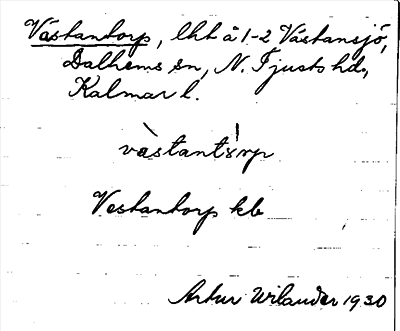 Västantorp, lht å 1-2 Västansjö,
Dalhems sn, N. Tjusts hd,
Kalmar l.
vàstantórp
Vestantorp kb
Artur Wilander 1930